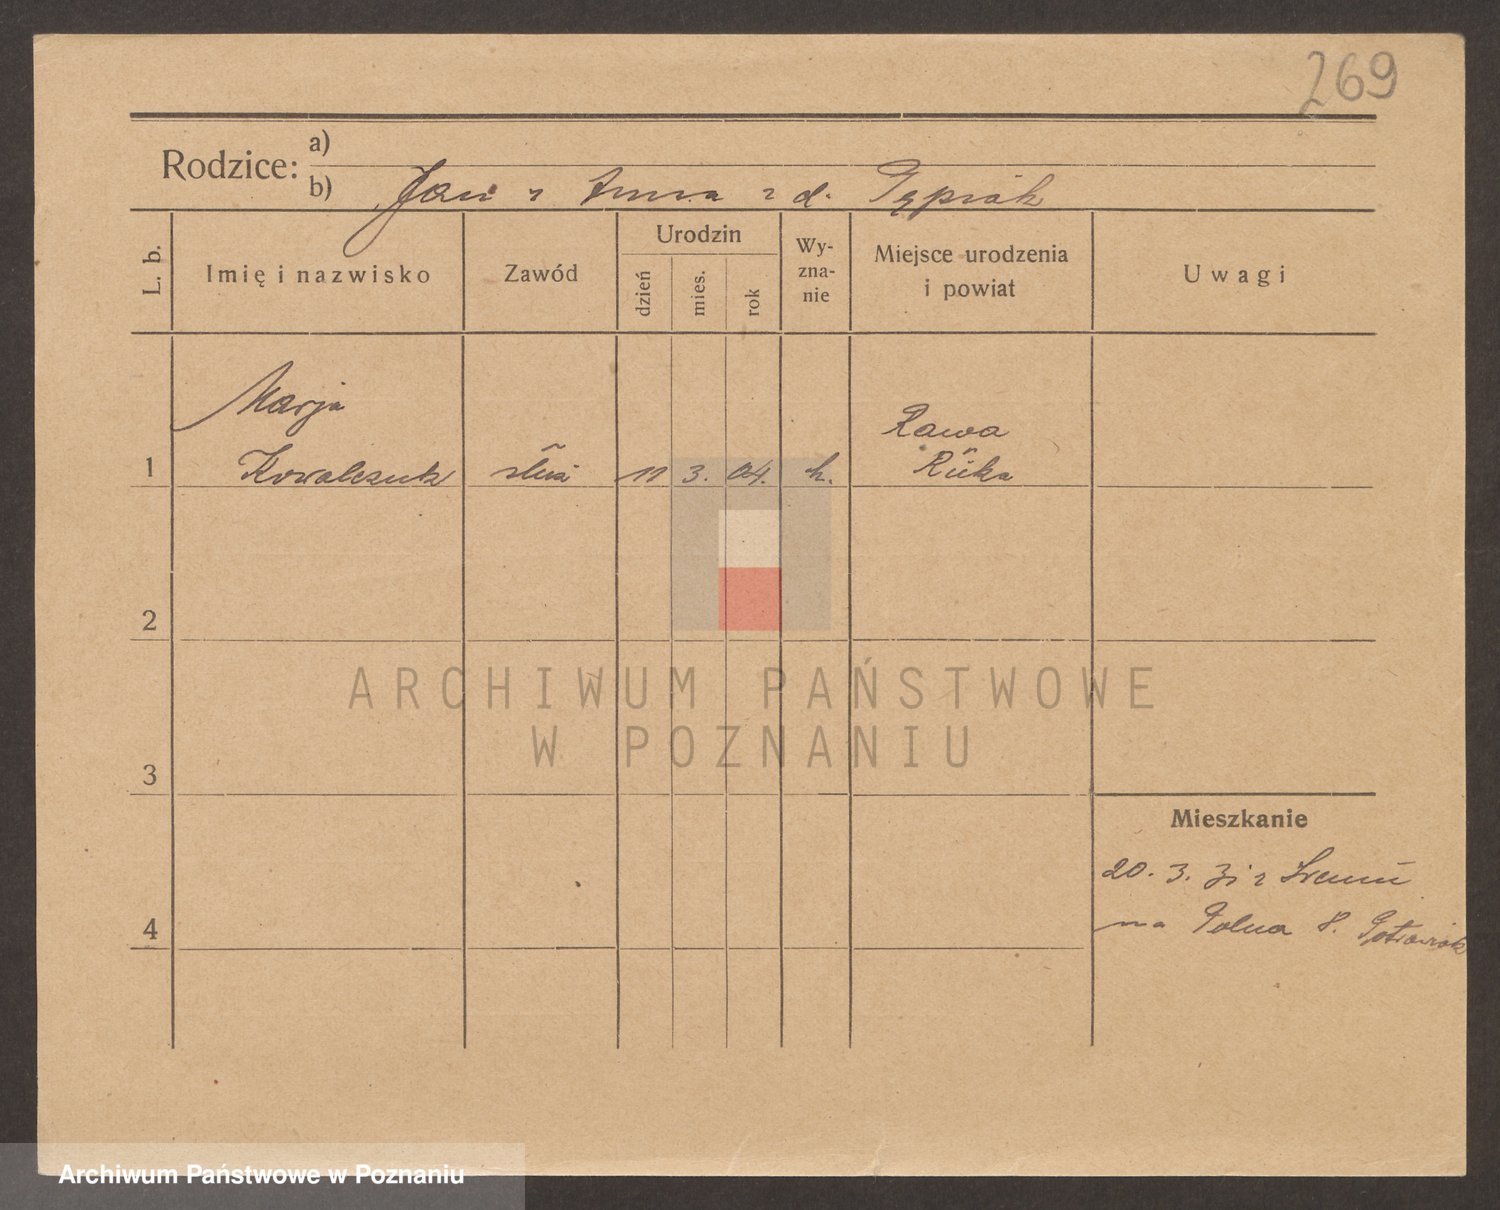 269
Rodzice:
a)
b) Jan i Anna z d.
L. b.
Imię i nazwisko
Zawód
Urodzin
dzień
mies.
rok
Wy-
zna-
nie
Miejsce urodzenia
i powiat
Uwagi
Marja
1 Kowalczuk służ 11 3. 04. k.
Rawa
Rüka
2
3
4
Mieszkanie
20. 3. 31 z
na Polna 8.
ARCHIWUM PAŃSTWOWE
W POZNANIU
Archiwum Państwowe w Poznaniu